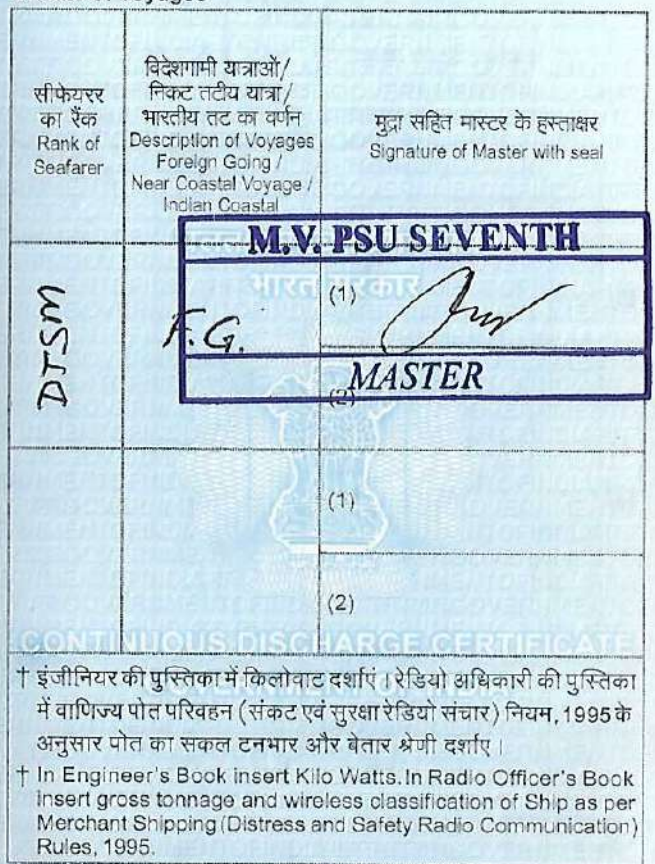 सीफेयरर
का रैंक
Rank of
Seafarer
विदेशगामी यात्राओं/
निकट तटीय यात्रा/
भारतीय तट का वर्णन
Description of Voyages
Foreign Going /
Near Coastal Voyage /
Indian Coastal
मुद्रा सहित मास्टर के हस्ताक्षर
Signature of Master with seal
M.V. PSU SEVENTH
भारत सरकार
DTSM
F.G.
(1)
MASTER
(2)
(1)
(2)
CONTINUOUS DISCHARGE CERTIFICATE
† इंजीनियर की पुस्तिका में किलोवाट दर्शाएं । रेडियो अधिकारी की पुस्तिका
में वाणिज्य पोत परिवहन (संकट एवं सुरक्षा रेडियो संचार) नियम, 1995 के
अनुसार पोत का सकल टनभार और बेतार श्रेणी दर्शाए ।
† In Engineer's Book insert Kilo Watts. In Radio Officer's Book
insert gross tonnage and wireless classification of Ship as per
Merchant Shipping (Distress and Safety Radio Communication)
Rules, 1995.